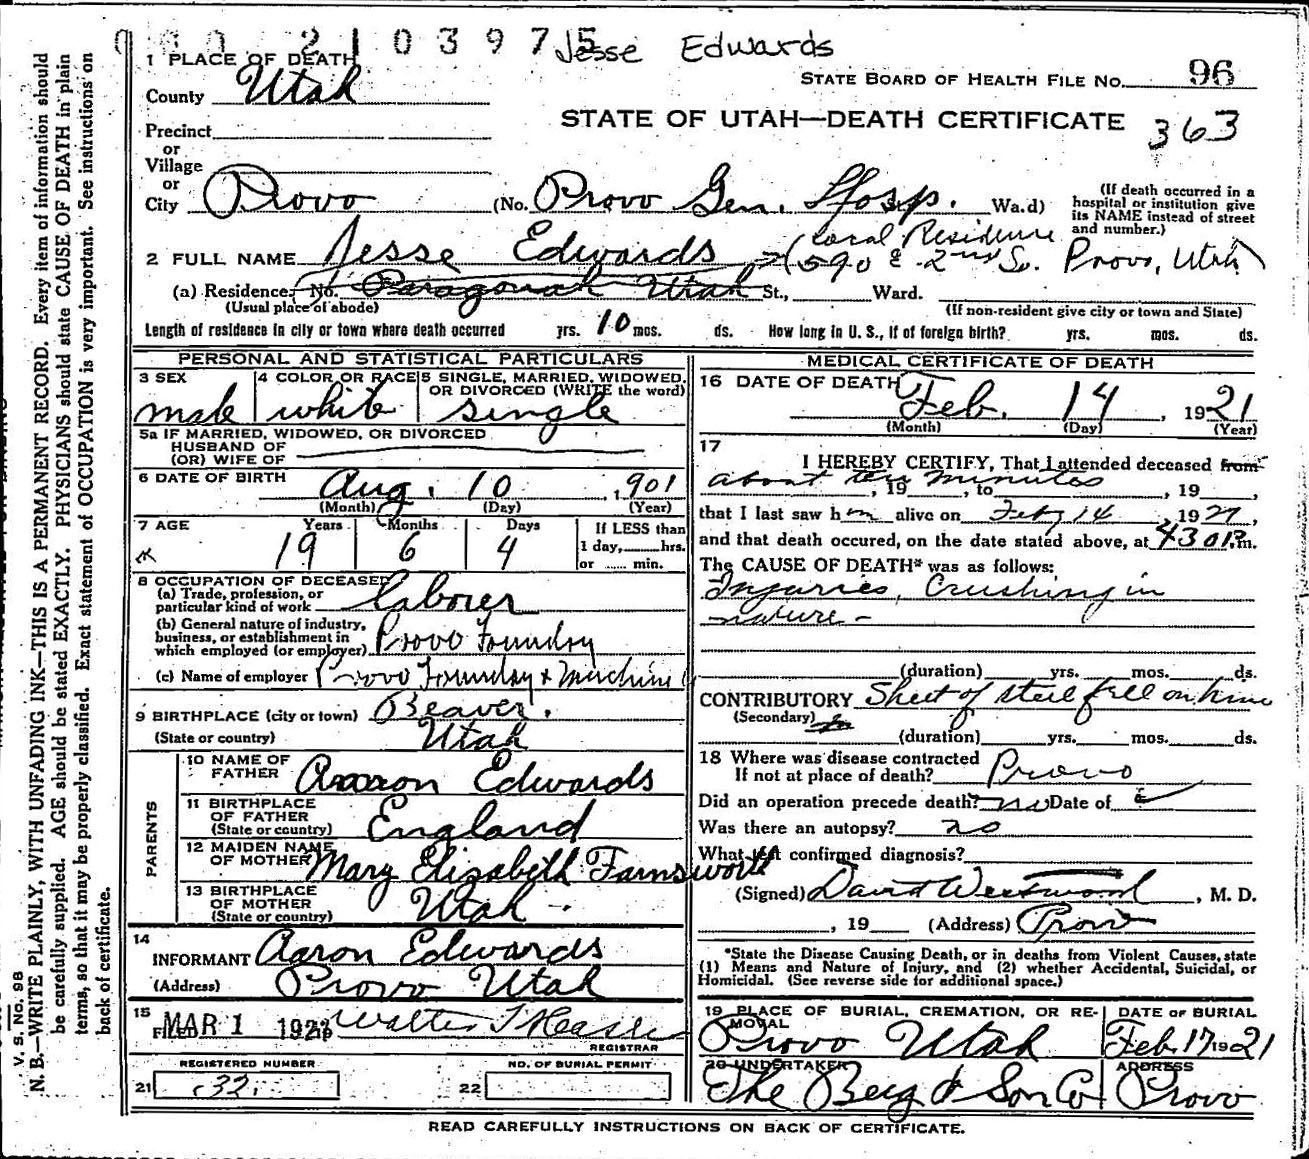 2103975 Jesse Edwards
1 PLACE OF DEATH
STATE BOARD OF HEALTH FILE NO. 96
County Utah
STATE OF UTAH—DEATH CERTIFICATE 363
Precinct
or
Village
or
City Provo (No. Provo Gen. Hosp. Wa.d)
(If death occurred in a hospital or institution give its NAME instead of street and number.)
2 FULL NAME Jesse Edwards (Local Residence 590 E. 2nd So. Provo, Utah)
(a) Residence. No. Paragonah Utah St., Ward.
(Usual place of abode) (If non-resident give city or town and State)
Length of residence in city or town where death occurred yrs. 10 mos. ds. How long in U. S., if of foreign birth? yrs. mos. ds.
PERSONAL AND STATISTICAL PARTICULARS
3 SEX 4 COLOR OR RACE 5 SINGLE, MARRIED, WIDOWED, OR DIVORCED (WRITE the word)
male white single
5a IF MARRIED, WIDOWED, OR DIVORCED
HUSBAND OF
(OR) WIFE OF
6 DATE OF BIRTH Aug. 10, 1901
(Month) (Day) (Year)
7 AGE Years Months Days If LESS than
19 6 4 1 day, hrs.
or min.
8 OCCUPATION OF DECEASED
(a) Trade, profession, or particular kind of work Laborer
(b) General nature of industry, business, or establishment in which employed (or employer) Provo Foundry
(c) Name of employer Provo Foundry & Machine
9 BIRTHPLACE (city or town) Beaver.
(State or country) Utah
PARENTS
10 NAME OF FATHER Aaron Edwards
11 BIRTHPLACE OF FATHER (State or country) England
12 MAIDEN NAME OF MOTHER Mary Elisabeth Farnsworth
13 BIRTHPLACE OF MOTHER (State or country) Utah
14 INFORMANT Aaron Edwards
(Address) Provo Utah
15 FILED MAR 1 192
REGISTRAR
REGISTERED NUMBER NO. OF BURIAL PERMIT
21 32. 22
MEDICAL CERTIFICATE OF DEATH
16 DATE OF DEATH Feb. 14, 1921
(Month) (Day) (Year)
17 I HEREBY CERTIFY, That I attended deceased from
about ten minutes, 19 , to , 19 ,
that I last saw him alive on Feby 14 1921,
and that death occured, on the date stated above, at 430 P.m.
The CAUSE OF DEATH* was as follows:
Injuries, Crushing in
nature -
(duration) yrs. mos. ds.
CONTRIBUTORY Sheet of steel fell on him
(Secondary)
(duration) yrs. mos. ds.
18 Where was disease contracted
If not at place of death? Provo
Did an operation precede death? no Date of
Was there an autopsy? no
What test confirmed diagnosis?
(Signed) David Westwood, M. D.
, 19 (Address) Provo
*State the Disease Causing Death, or in deaths from Violent Causes, state
(1) Means and Nature of Injury, and (2) whether Accidental, Suicidal, or
Homicidal. (See reverse side for additional space.)
19 PLACE OF BURIAL, CREMATION, OR REMOVAL DATE OF BURIAL
Provo Utah Feb. 17 1921
20 UNDERTAKER ADDRESS
The Berg & Son Co Provo
READ CAREFULLY INSTRUCTIONS ON BACK OF CERTIFICATE.
V. S. No. 98
N. B.—WRITE PLAINLY, WITH UNFADING INK—THIS IS A PERMANENT RECORD. Every item of information should
be carefully supplied. AGE should be stated EXACTLY. PHYSICIANS should state CAUSE OF DEATH in plain
terms, so that it may be properly classified. Exact statement of OCCUPATION is very important. See instructions on
back of certificate.